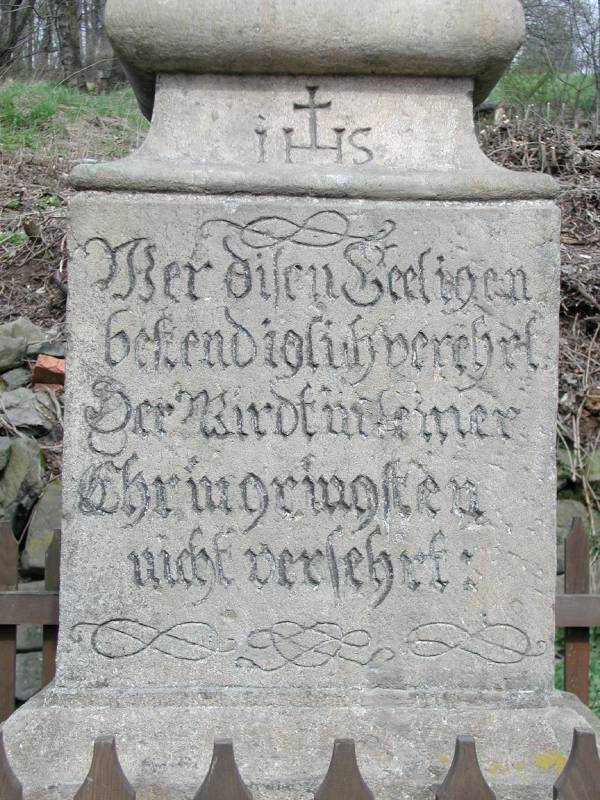 iHS
Wer disen Seeligen
bestendiglich verehrt
Der Wirdt in seiner
Ehr im gringsten
nicht versehrt: